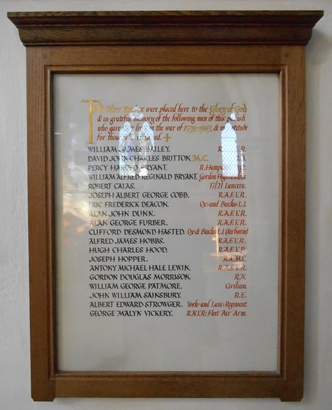 These were placed here to the Glory of God
& in grateful memory of the following men of this parish
who gave their lives in the war of 1939-1945, & in gratitude
For those
WILLIAM JAMES BAILEY. R.A.F.V.R.
DAVID JOHN CHARLES BRITTON. M.C.
PERCY HAROLD BRYANT. R. Hamp
WILLIAM ALFRED REGINALD BRYANT. Gordon Highlanders.
ROBERT CALAS. 17/21 Lancers.
JOSEPH ALBERT GEORGE COBB. R.A.F.V.R.
ERIC FREDERICK DEACON. Ox and Bucks L.I.
ALAN JOHN DUNK. R.A.F.V.R.
ALAN GEORGE FURBER. R.A.F.V.R.
CLIFFORD DESMOND HASTED. Ox & Bucks L.I (Airborne)
ALFRED JAMES HOBBS. R.A.F.V.R.
HUGH CHARLES HOOD. R.A.F.V.R.
JOSEPH HOPPER. R.A.M.C.
ANTONY MICHAEL HALE LEWIN. R.A.F.V.R.
GORDON DOUGLAS MORRISON. R.N.
WILLIAM GEORGE PATMORE. Civilian.
JOHN WILLIAM SAINSBURY. R.E.
ALBERT EDWARD STROWGER. York and Lancs Regiment
GEORGE MALYN VICKERY. R.N.V.R: Fleet Air Arm.